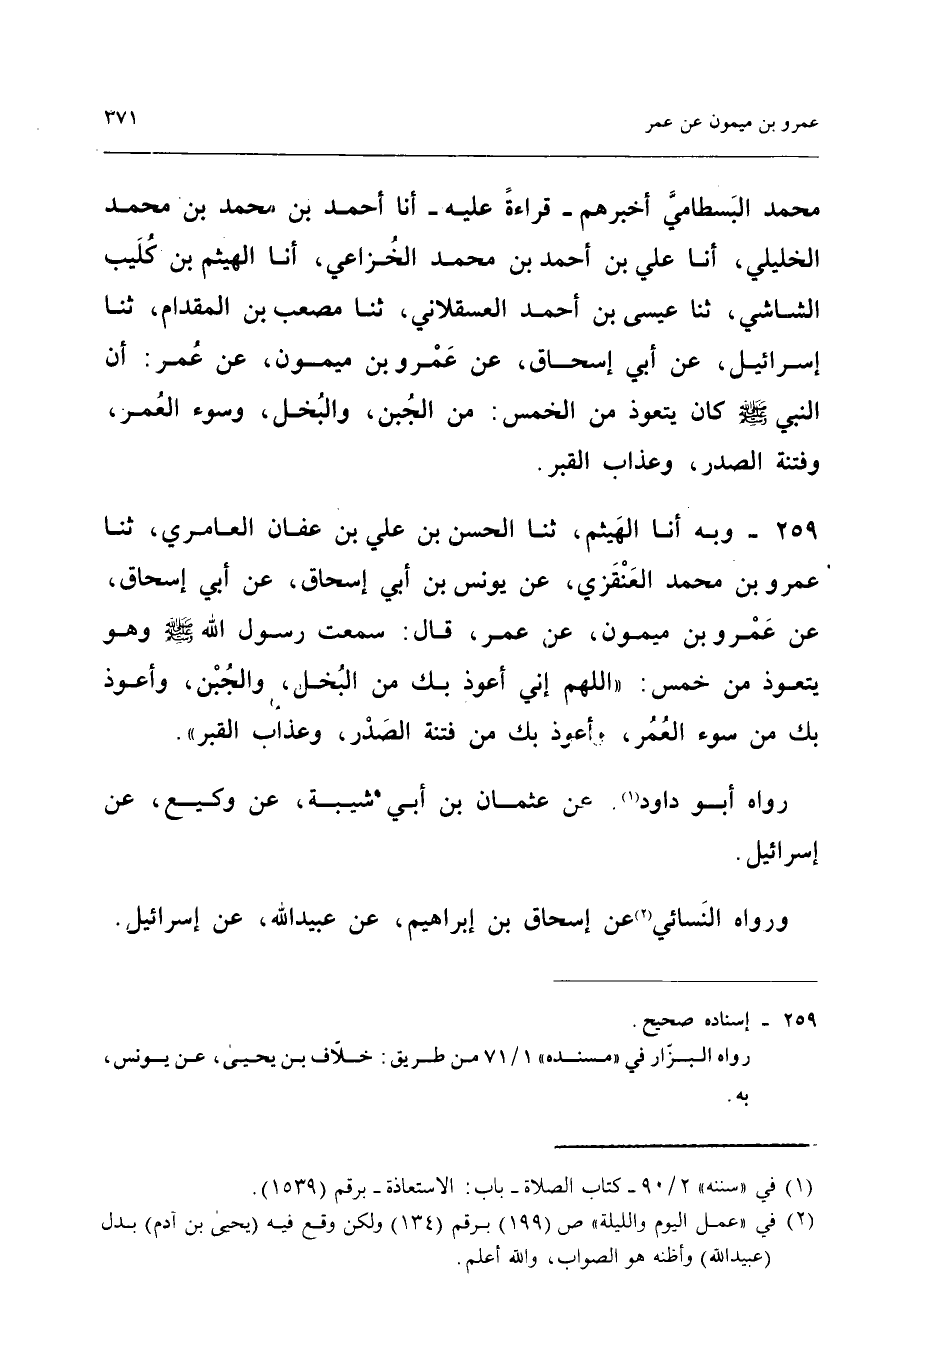 عمرو بن ميمون عن عمر ٣٧١
محمد البَسطاميَّ أخبرهم ـ قراءةً عليه ـ أنا أحمد بن محمد بن محمد
الخليلي، أنا علي بن أحمد بن محمد الخُزاعي، أنا الهيثم بن كُلَيب
الشاشي، ثنا عيسى بن أحمد العسقلاني، ثنا مصعب بن المقدام، ثنا
إسرائيل، عن أبي إسحاق، عن عَمْرو بن ميمون، عن عُمر: أن
النبي ﷺ كان يتعوذ من الخمس: من الجُبن، والبُخل، وسوء العُمر،
وفتنة الصدر، وعذاب القبر.
٢٥٩ ـ وبه أنا الهَيثم، ثنا الحسن بن علي بن عفان العامري، ثنا
عمرو بن محمد العَنْقَزي، عن يونس بن أبي إسحاق، عن أبي إسحاق،
عن عَمْرو بن ميمون، عن عمر، قال: سمعت رسول الله ﷺ وهو
يتعوذ من خمس: «اللهم إني أعوذ بك من البُخل، والجُبْن، وأعوذ
بك من سوء العُمُر، وأعوذ بك من فتنة الصَدْر، وعذاب القبر».
رواه أبو داود(١). عن عثمان بن أبي شيبة، عن وكيع، عن
إسرائيل.
ورواه النَسائي(٢) عن إسحاق بن إبراهيم، عن عبيدالله، عن إسرائيل.
٢٥٩ ـ إسناده صحيح.
رواه البزّار في «مسنده» ٧١/١ من طريق: خلاّف بن يحيىٰ، عن يونس،
به.
(١) في «سننه» ٩٠/٢ ـ كتاب الصلاة ـ باب: الاستعاذة ـ برقم (١٥٣٩).
(٢) في «عمل اليوم والليلة» ص (١٩٩) برقم (١٣٤) ولكن وقع فيه (يحيىٰ بن آدم) بدل
(عبيدالله) وأظنه هو الصواب، والله أعلم.